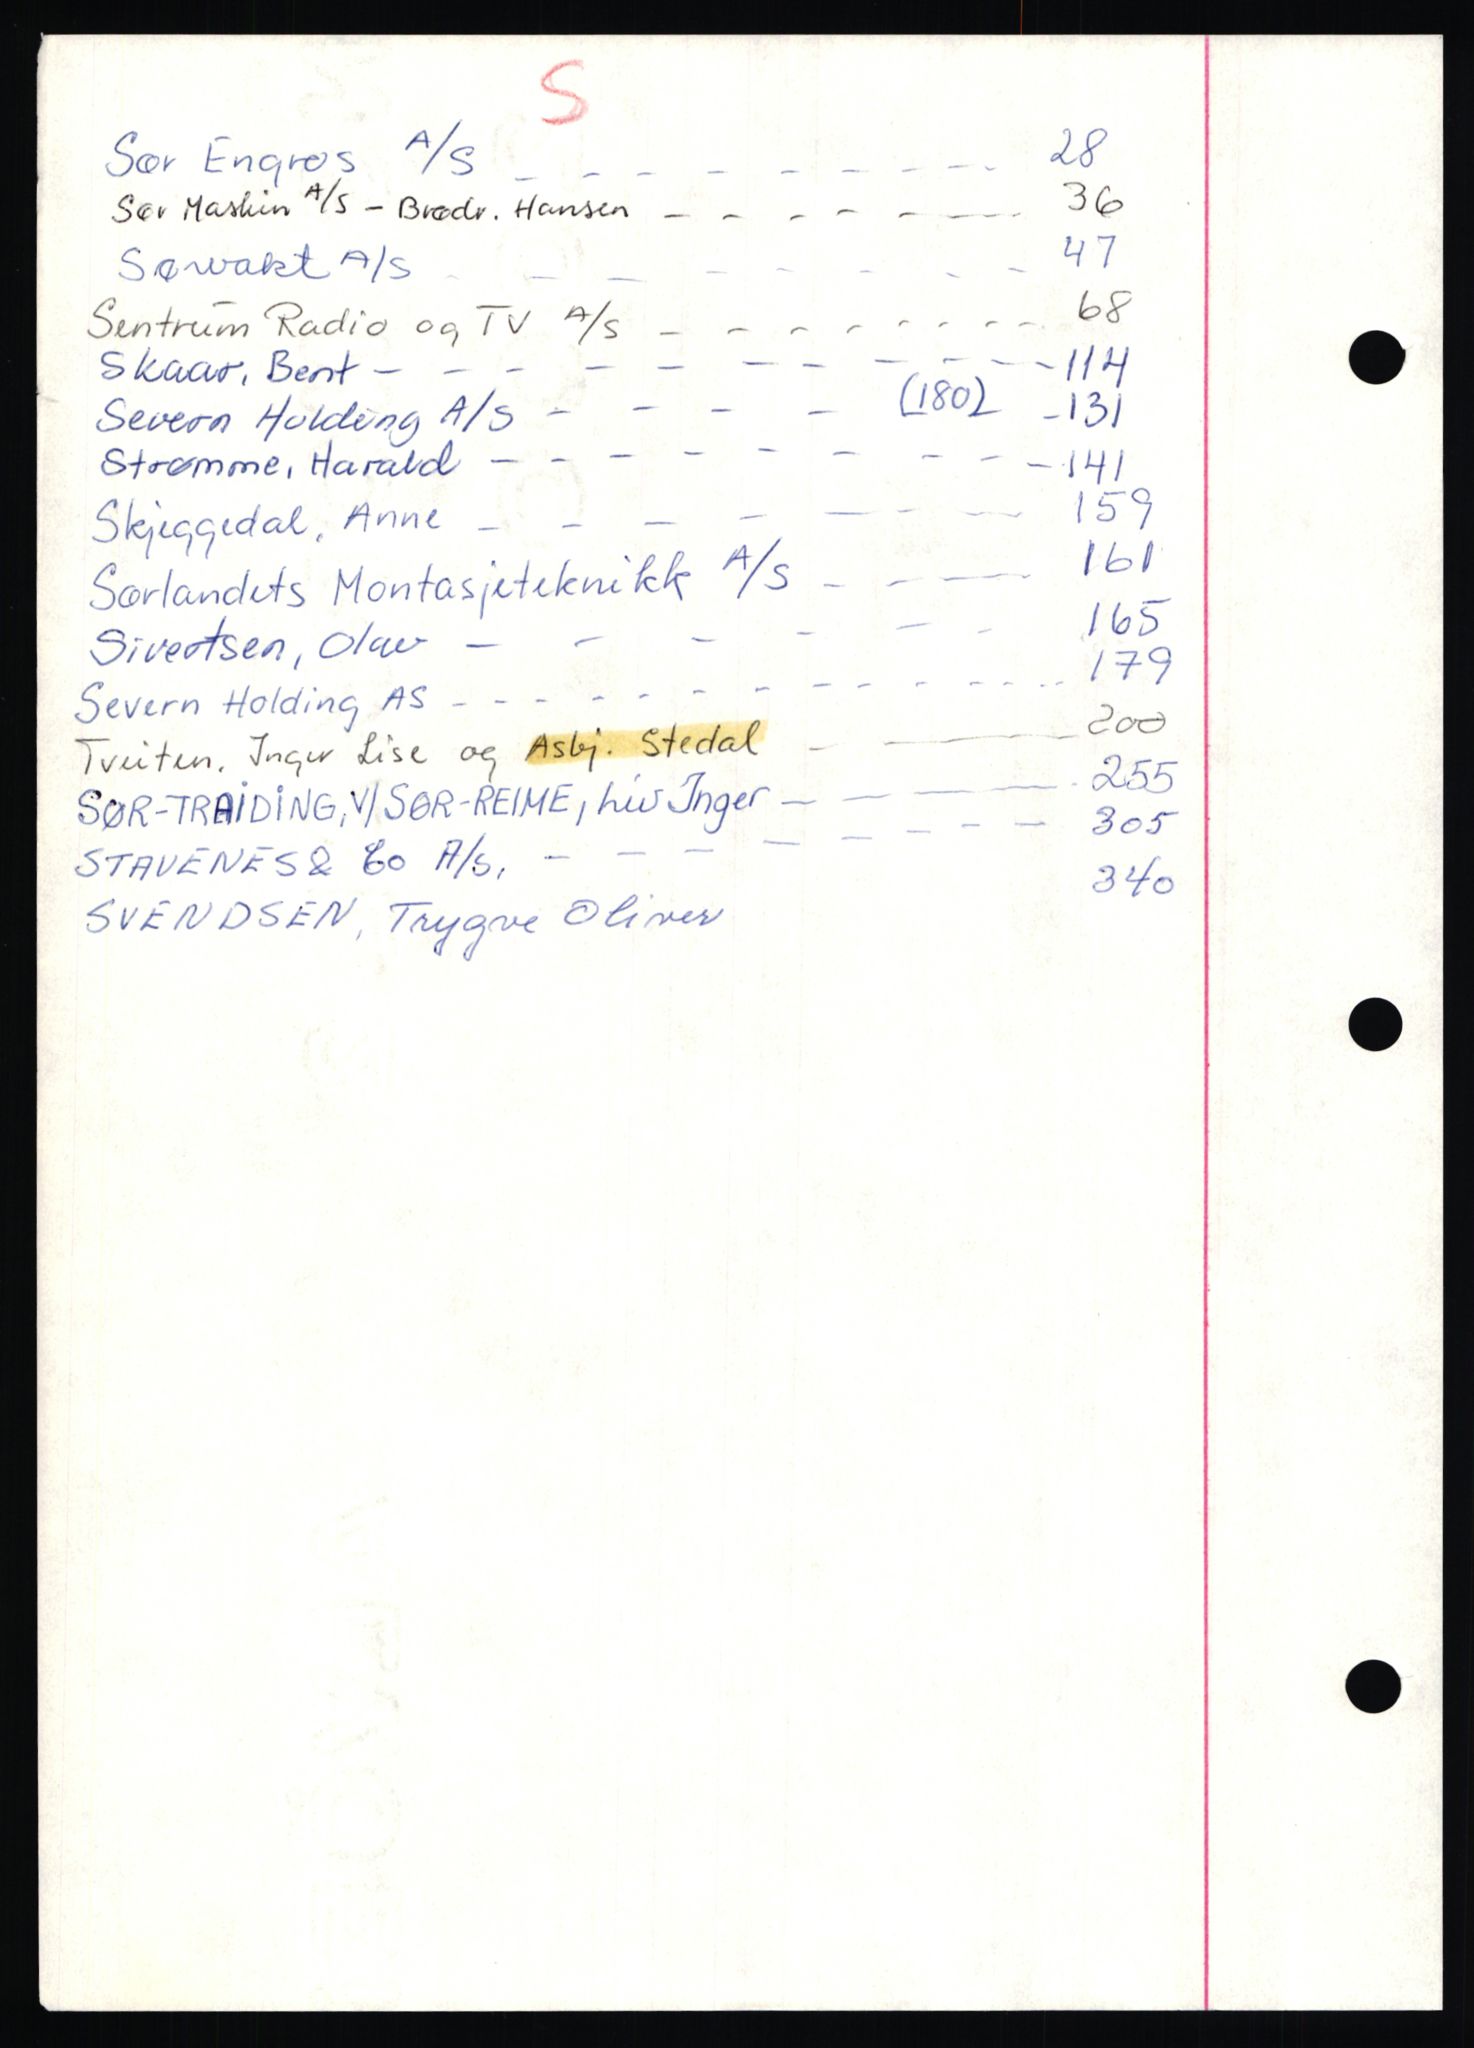 S
Sør Engros A/S - - - - - - - - - 28
Sør Maskin A/S - Brødr. Hansen - - - - - - - 36
Sørvakt A/S - - - - - - - - 47
Sentrum Radio og TV A/S - - - - - - - - - 68
Skaar, Bent - - - - - - - - - - 114
Severn Holding A/S - - - - (180) - 131
Strømme, Harald - - - - - - - - - - 141
Skjeggedal, Anne - - - - - - - 159
Sørlandets Montasjeteknikk A/S - - - 161
Sivertsen, Olav - - - - - - 165
Severn Holding AS - - - - - - - - - - - - 179
Tveiten, Inger Lise og Asbj. Stedal - - - 200
SØR-TRAIDING, V/ SØR-REIME, Liv Inger - - - 255
STAVENES & Co A/S, - - - - - - - 305
SVENDSEN, Trygve Oliver 340